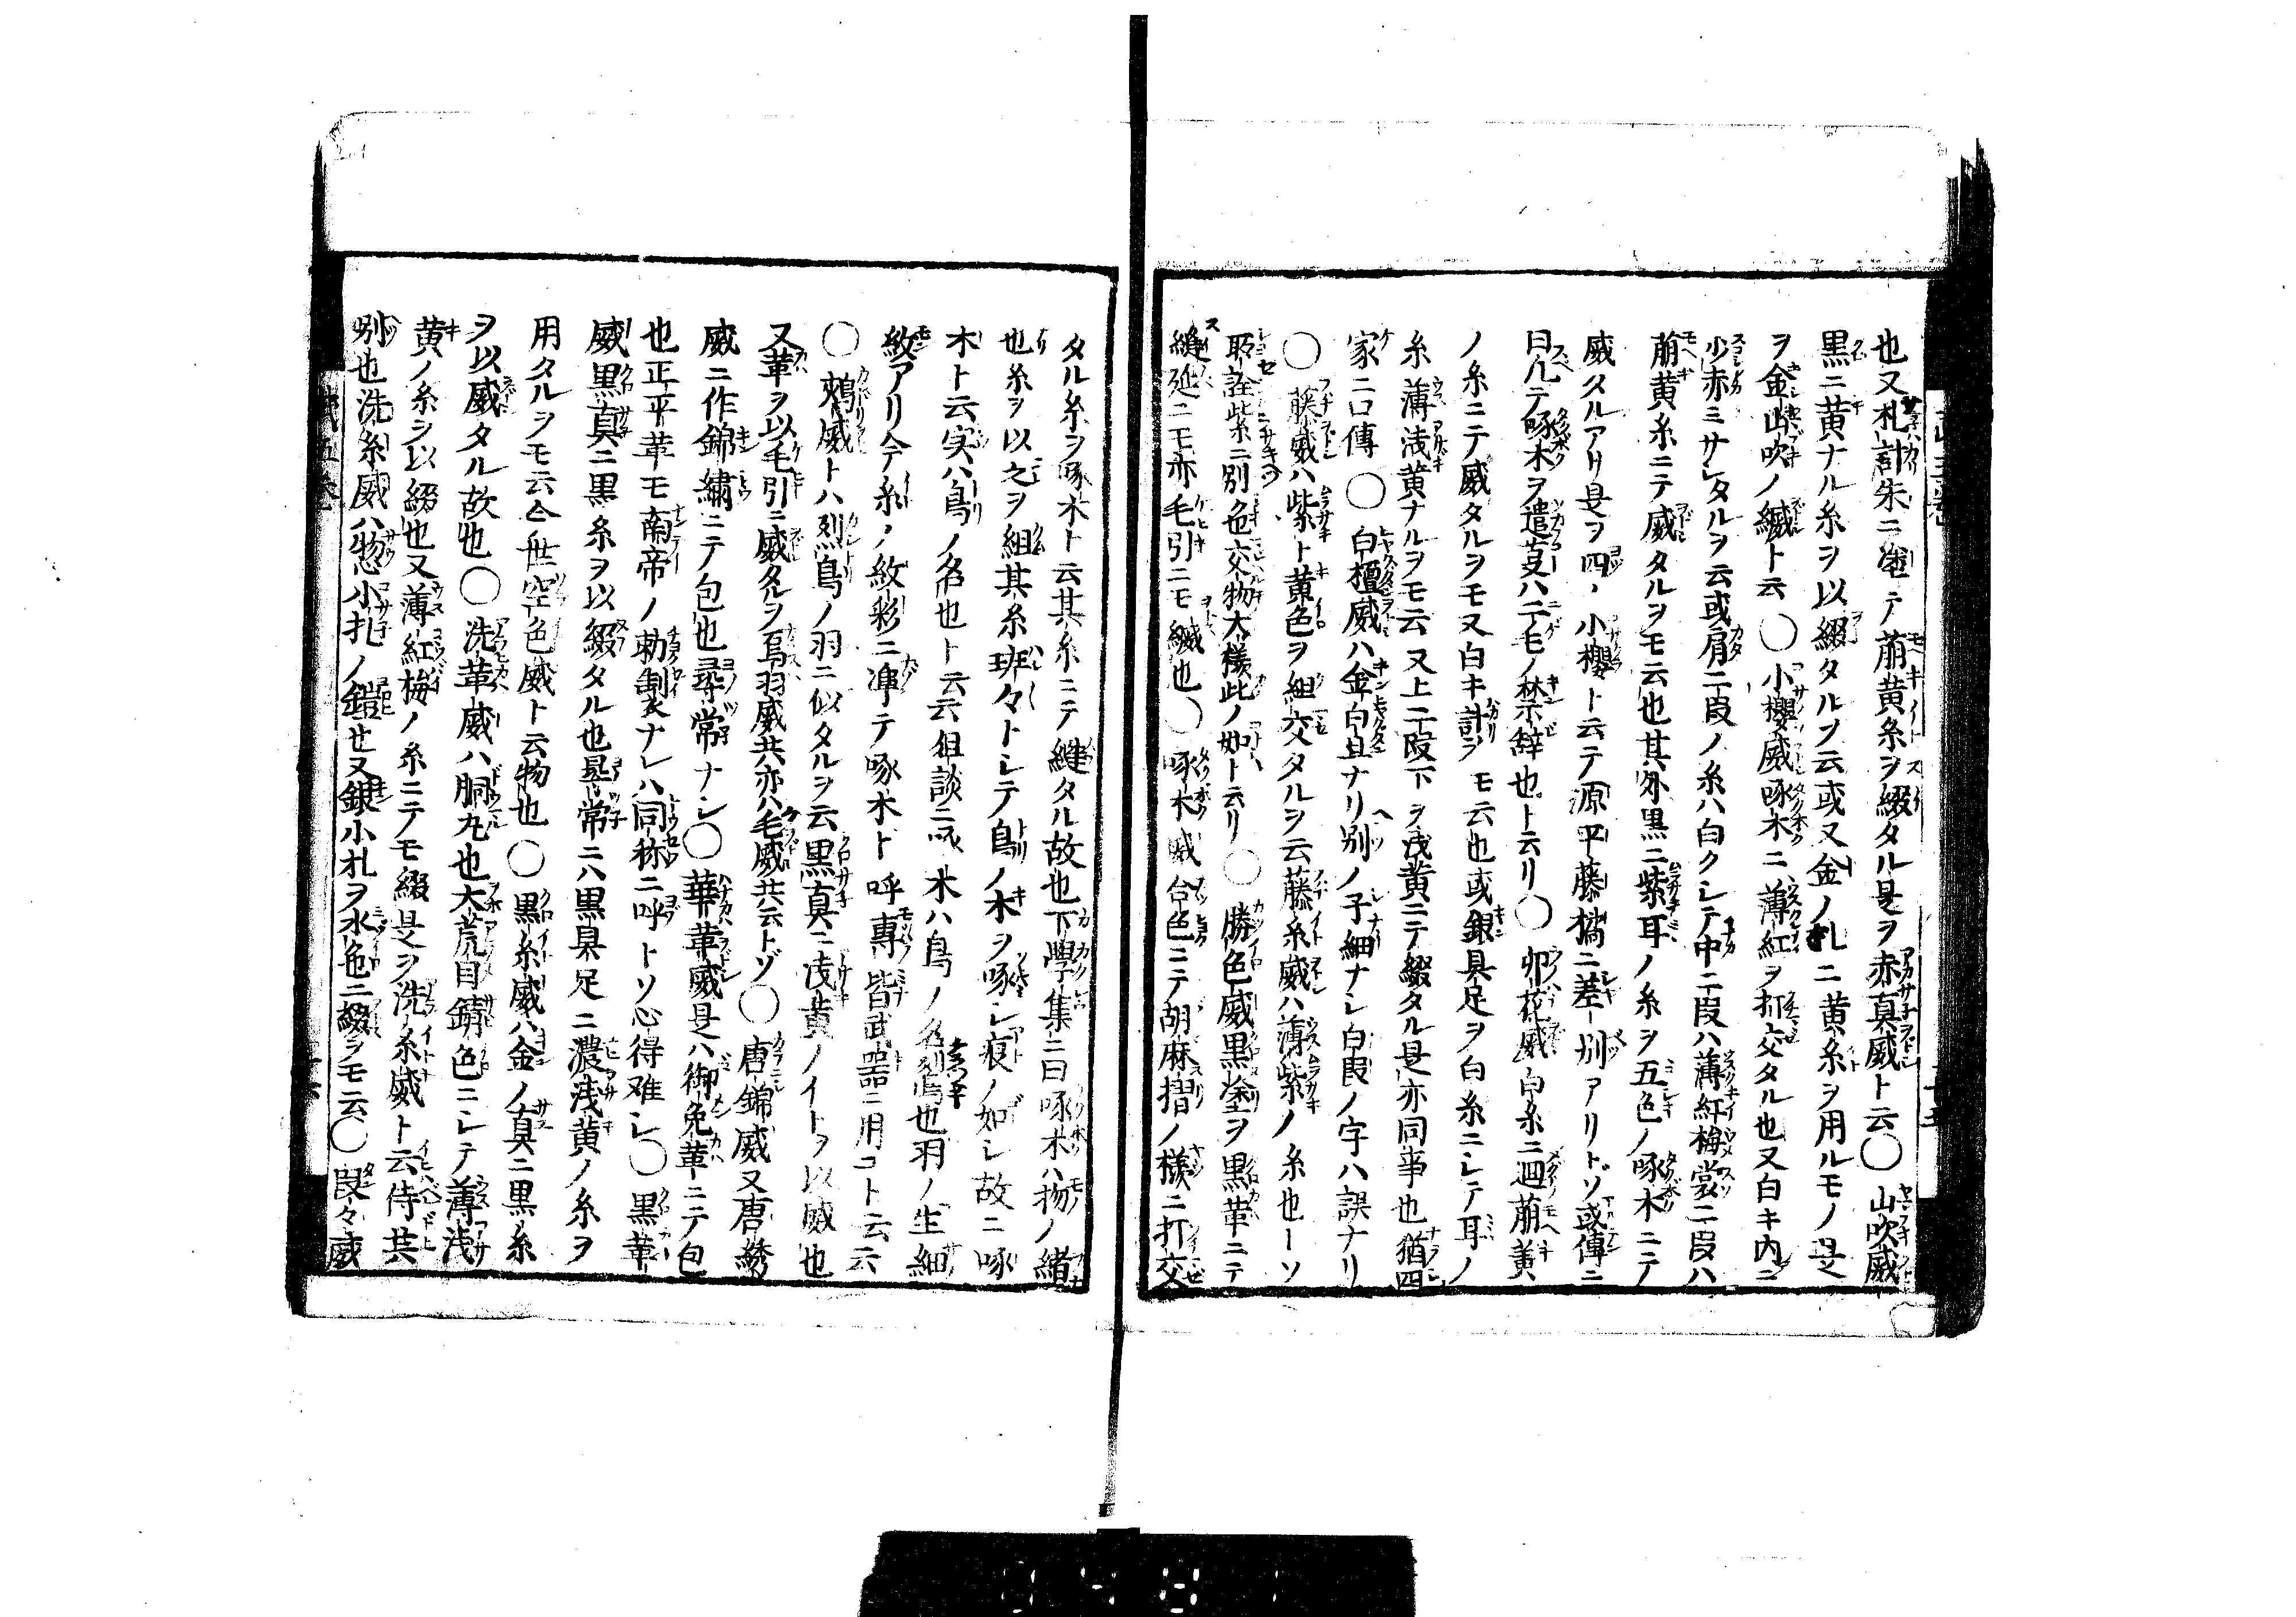 也又札計朱ニ塗テ萠黄糸ヲ綴タル是ヲ赤真威ト云〇山吹威
黒ニ黄ナル糸ヲ以綴タルヲ云或又金ノ札ニ黄糸ヲ用ルモノ是
ヲ金山吹ノ縅ト云〇小櫻威啄木ニ薄紅ヲ打交タル也又白キ内ニ
少赤ミサレタルヲ云或肩二段ノ糸ハ白クシテ中二段ハ薄紅梅裳二段ハ
萠黄糸ニテ威タルヲモ云也其外黒ニ紫耳ノ糸ヲ五色ノ啄木ニテ
威タルアリ是ヲ四ノ小櫻ト云テ源平藤橘ニ差別アリトソ或傳ニ
曰凡テ啄木ヲ遣支ハニモノ禁ノ辞也ト云リ〇卯花威白糸ニ廻萠黄
ノ糸ニテ威タルヲモ又白キ計ヲモ云也或銀具足ヲ白糸ニシテ耳ノ
糸薄浅黄ナルヲモ云又上二段下ヲ浅黄ニテ綴タル是亦同事也猶四
家ニ口傳〇白檀威ハ金白且ナリ別ノ子細ナシ白段ノ字ハ誤ナリ
〇藤威ハ紫ト黄色ヲ組交タルヲ云藤糸威ハ薄紫ノ糸也一ソ
耴詮紫ニ別色交物大様此ノ如ト云リ〇勝色威黒塗ヲ黒革ニテ
縫延ニモ亦毛引ニモ縅也〇啄木威合色ニテ胡麻摺ノ様ニ打交
タル糸ヲ啄木ト云其糸ニテ縫タル故也下學集ニ曰啄木ハ物ノ緒
也糸ヲ以之ヲ組其糸斑々トシテ鳥ノ木ヲ啄シ痕ノ如シ故ニ啄
木ト云実ハ鳥ノ名也ト云云俗談ニ啄木ハ鳥ノ名也羽ノ生細
紋アリ今糸ノ紋彩ニ準テ啄木ト呼專皆武器ニ用コト云云
〇鵊威トハ烈鳥ノ羽ニ似タルヲ云黒真ニ浅黄ノイトヲ以威也
又革ヲ以毛引ニ威タルヲ烏羽威共亦ハ毛威共云トソ〇唐錦威又唐綉
威ニ作錦繡ニテ包也尋常ナシ〇華革威是ハ御免革ニテ包
也正平革モ南帝ノ勅製ナレハ同称ニ呼トソ心得难シ〇黒革
威黒真ニ黒糸ヲ以綴タル也尋常ニハ黒具足ニ濃浅黄ノ糸ヲ
用タルヲモ云今世空色威ト云物也〇黒糸威ハ金ノ真ニ黒糸
ヲ以威タル故也〇洗革威ハ胴丸也大荒目鏥色ニシテ薄浅
黄ノ糸ヲ以綴也又薄紅梅ノ糸ニテモ綴是ヲ洗糸威ト云侍共
別也洗糸威ハ惣小札ノ鎧也又銀小札ヲ水色ニ綴ヲモ云〇段々威